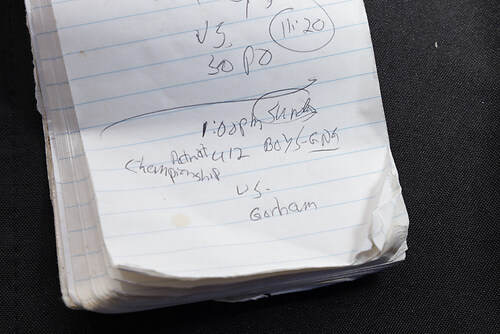 11:20
VS.
SoPo
1:00pm Sunday
Patriot U12 BOYS-
Championship
VS.
Gorham